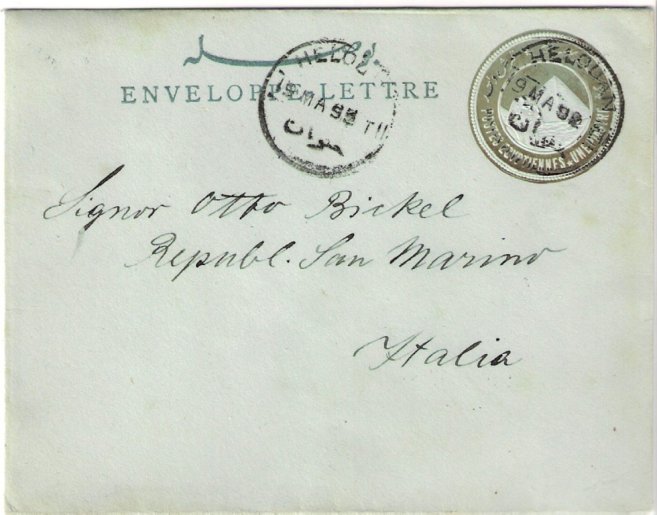 ENVELOPPE-LETTRE
HELOUAN
9 MA 98 TII
حلوان
HELOUAN
9 MA 98
POSTES EGYPTIENNES
Signor Otto Bickel
Republ. San Marino
Italia